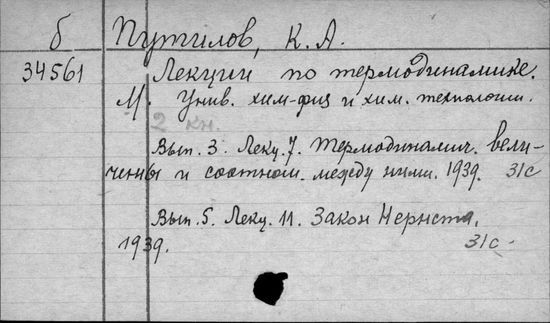 б Путилов, К. А.
34561 Лекции по термодинамике.
М. Унив. хим-физ и хим. технологии.
2 кн.
Вып. 3. Лекц. 7. Термодинамич. вели-
чины и соотнош. между ними. 1939. 31с
Вып. 5. Лекц. 11. Закон Нернста.
1939. 31с.